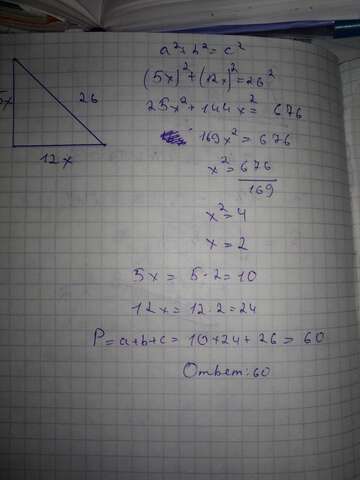 a² + b² = c²
(5x)² + (12x)² = 26²
5x
26
12x
25x² + 144x² = 676
169x² = 676
x² = 676/169
x² = 4
x = 2
5x = 5·2 = 10
12x = 12·2 = 24
P = a+b+c = 10+24+26 = 60
Ответ: 60